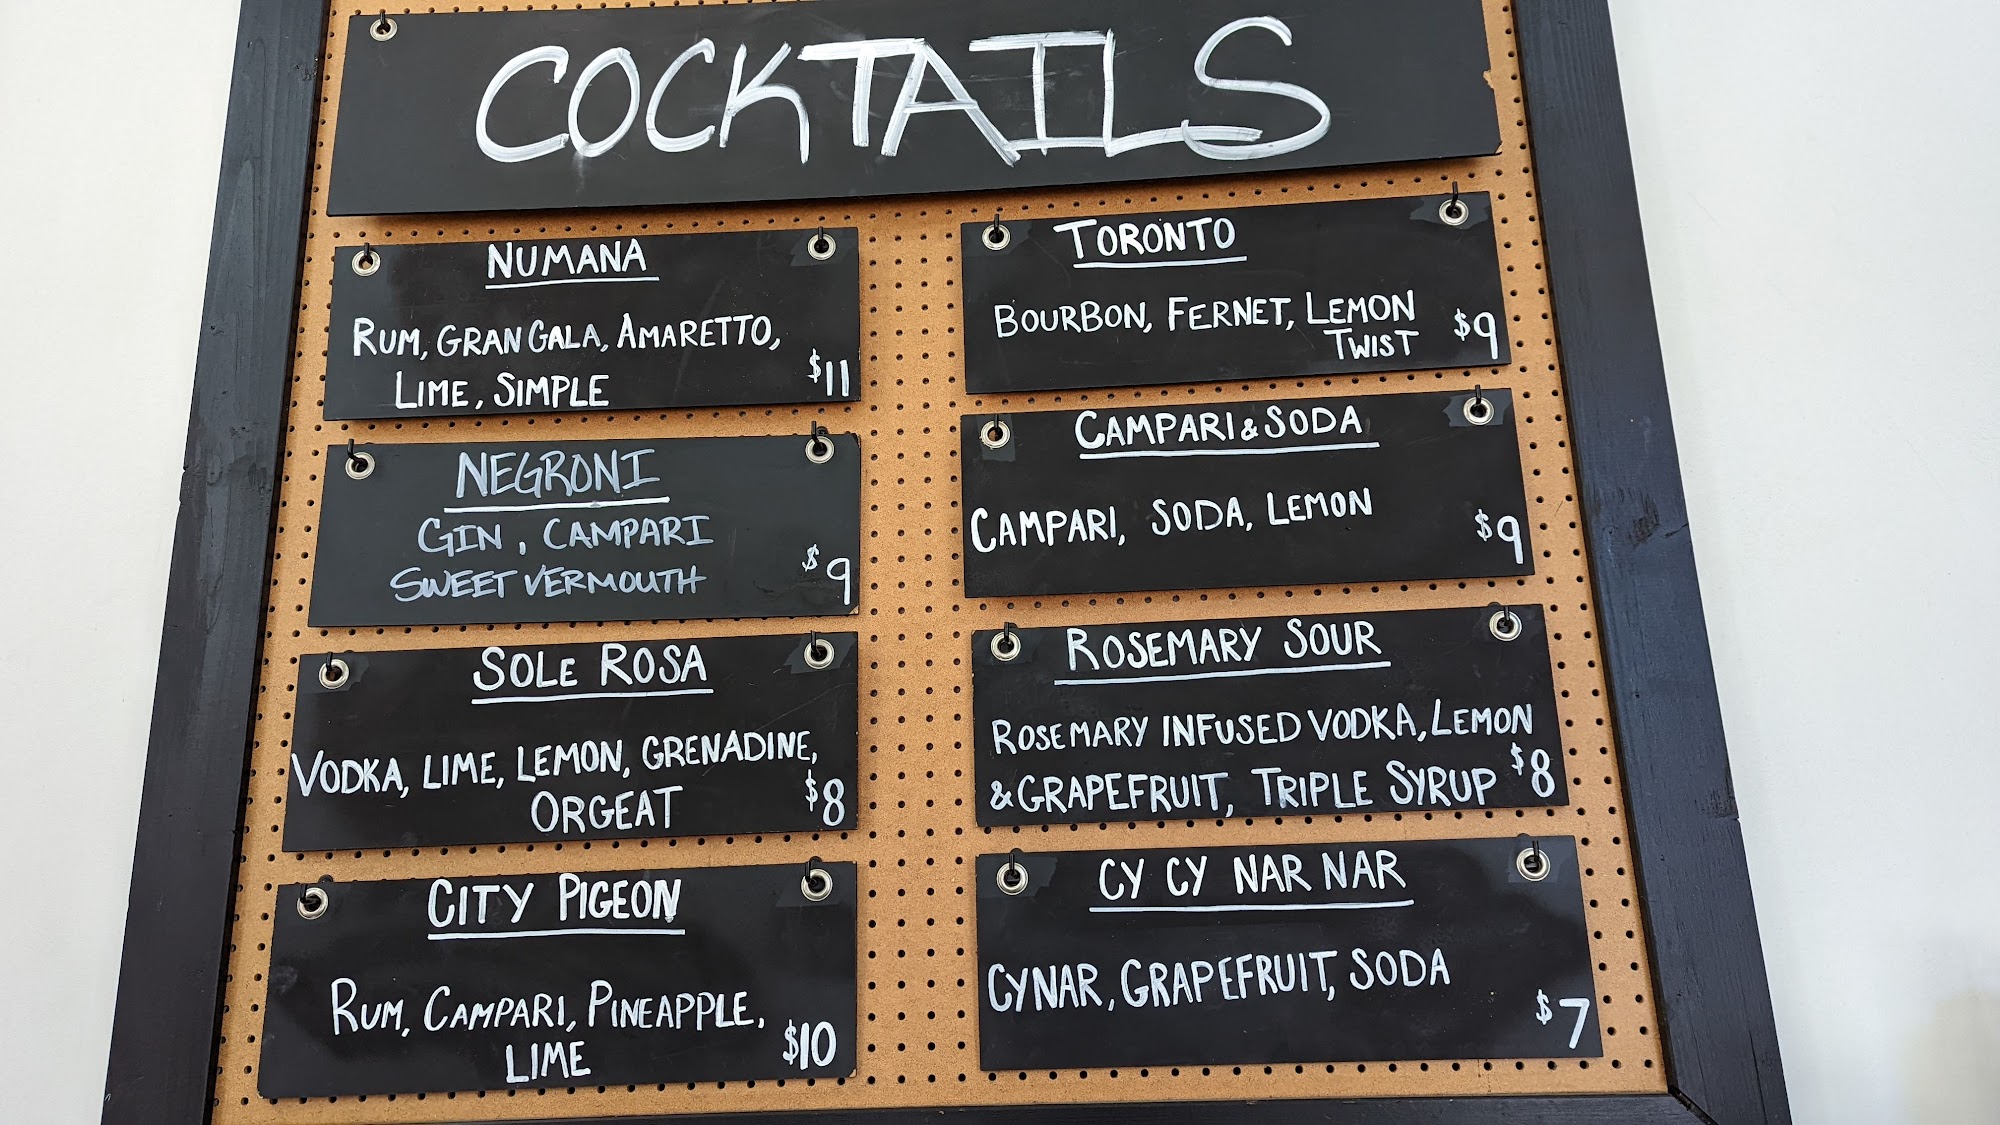 COCKTAILS
NUMANA
RUM, GRAN GALA, AMARETTO,
LIME, SIMPLE
$11
NEGRONI
GIN, CAMPARI
SWEET VERMOUTH
$9
SOLE ROSA
VODKA, LIME, LEMON, GRENADINE,
ORGEAT
$8
CITY PIGEON
RUM, CAMPARI, PINEAPPLE,
LIME
$10
TORONTO
BOURBON, FERNET, LEMON
TWIST
$9
CAMPARI & SODA
CAMPARI, SODA, LEMON
$9
ROSEMARY SOUR
ROSEMARY INFUSED VODKA, LEMON
& GRAPEFRUIT, TRIPLE SYRUP
$8
CY CY NAR NAR
CYNAR, GRAPEFRUIT, SODA
$7